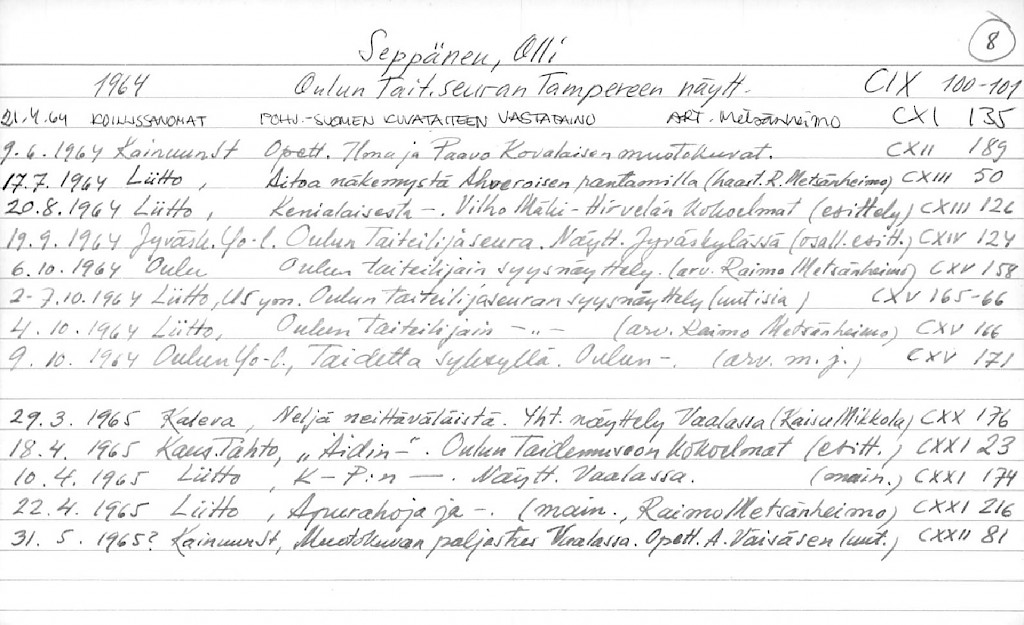 8
Seppänen, Olli
1964 Oulun Tait.seuran Tampereen näytt. CIX 100-101
21.4.64 KOILLISSANOMAT POHJ.-SUOMEN KUVATAITEEN VASTAPAINO ART. Metsänheimo CXI 135
9.6.1964 Kainuun St Opett. Ilma ja Paavo Kovalaisen muotokuvat. CXII 189
17.7.1964 Liitto, Aitoa näkemystä Ahveroisen rantamilla (haast. R. Metsänheimo) CXIII 50
20.8.1964 Liitto, Kenialaisesta -. Vilho Mäki-Hirvelän kokoelmat (esittely) CXIII 126
19.9.1964 Jyväsk. Yo-l. Oulun Taiteilijaseura. Näytt. Jyväskylässä (osall. esitt.) CXIV 124
6.10.1964 Oulu Oulun taiteilijain syysnäyttely. (arv. Raimo Metsänheimo) CXV 158
2-7.10.1964 Liitto, US ym. Oulun taiteilijaseuran syysnäyttely (uutisia) CXV 165-66
4.10.1964 Liitto, Oulun taiteilijain -"- (arv. Raimo Metsänheimo) CXV 166
9.10.1964 Oulun Yo-l., Taidetta syksyllä. Oulun -. (arv. m.j.) CXV 171
29.3.1965 Kaleva, Neljä neittäväläistä. Yht. näyttely Vaalassa (Kaisu Mikkola) CXX 176
18.4.1965 Kans.Tahto, "Äidin-". Oulun Taidemuseon kokoelmat (esitt.) CXXI 23
10.4.1965 Liitto, K-P:n —. Näytt. Vaalassa. (main.) CXXI 174
22.4.1965 Liitto, Apurahoja ja -. (main., Raimo Metsänheimo) CXXI 216
31.5.1965? Kainuun St, Muotokuvan paljastus Vaalassa. Opett. A. Väisäsen (uut.) CXXII 81